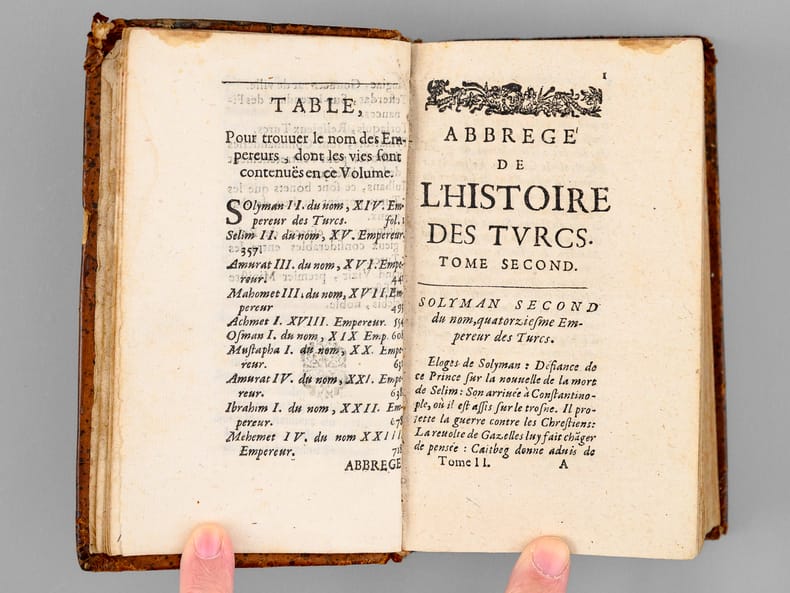 TABLE,
Pour trouuer le nom des Em-
pereurs, dont les vies sont
contenuës en ce Volume.
SOlyman II. du nom, XIV. Em-
pereur des Turcs. fol. 1
Selim II. du nom, XV. Empereur
357.
Amurat III. du nom, XVI. Empe-
reur.
Mahomet III. du nom, XVII. Em-
pereur
Achmet I. XVIII. Empereur. 554
Osman I. du nom, XIX Emp.
Mustapha I. du nom, XX. Empe-
reur.
Amurat IV. du nom, XXI. Empe-
reur.
Ibrahim I. du nom, XXII. Em-
pereur.
Mehemet IV. du nom XXIII.
Empereur.
ABBREGE
1
ABBREGE'
DE
L'HISTOIRE
DES TVRCS.
TOME SECOND.
SOLYMAN SECOND
du nom, quatorziesme Em-
pereur des Turcs.
Eloges de Solyman : Défiance de
ce Prince sur la nouuelle de la mort
de Selim : Son arriuée à Constantino-
ple, où il est assis sur le trosne. Il pro-
jette la guerre contre les Chrestiens:
La reuolte de Gazelles luy fait chãger
de pensée : Caitbeg donne aduis de
Tome II. A